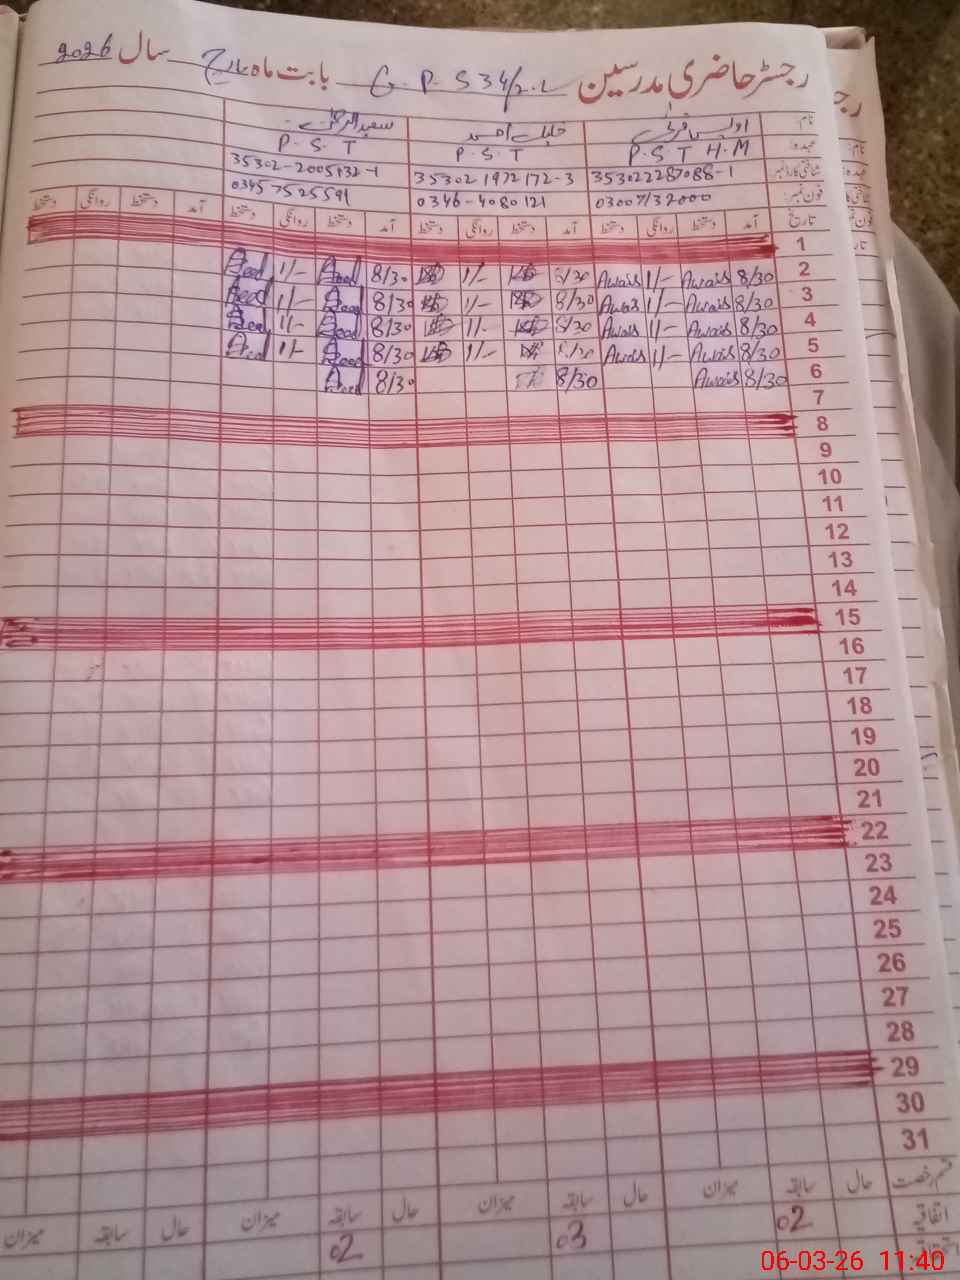 رجسٹر حاضری مدرسین G.P.S 34/2.L بابت ماہ مارچ سال 2026
نام: اویس قرنی خلیل احمد سعید الرحمٰن
عہدہ: P.S.T H.M P.S.T P.S.T
شناختی کارڈ نمبر 353022287088-1 353021972172-3 35302-2005932-1
فون نمبر: 03007132000 0346-4080121 03457525591
تاریخ آمد دستخط روانگی دستخط آمد دستخط روانگی دستخط آمد دستخط روانگی دستخط آمد دستخط روانگی دستخط
1
2 8/30 Awais 1/- Awais 8/30 1/- 8/30 1/-
3 8/30 Awais 1/- Awais 8/30 1/- 8/30 1/-
4 8/30 Awais 1/- Awais 8/30 1/- 8/30 1/-
5 8/30 Awais 1/- Awais 8/30 1/- 8/30 1/-
6 8/30 Awais 8/30 8/30
7
8
9
10
11
12
13
14
15
16
17
18
19
20
21
22
23
24
25
26
27
28
29
30
31
قسم رخصت حال سابقہ میزان حال سابقہ میزان حال سابقہ میزان حال سابقہ میزان
اتفاقیہ 02 03 02
06-03-26 11:40